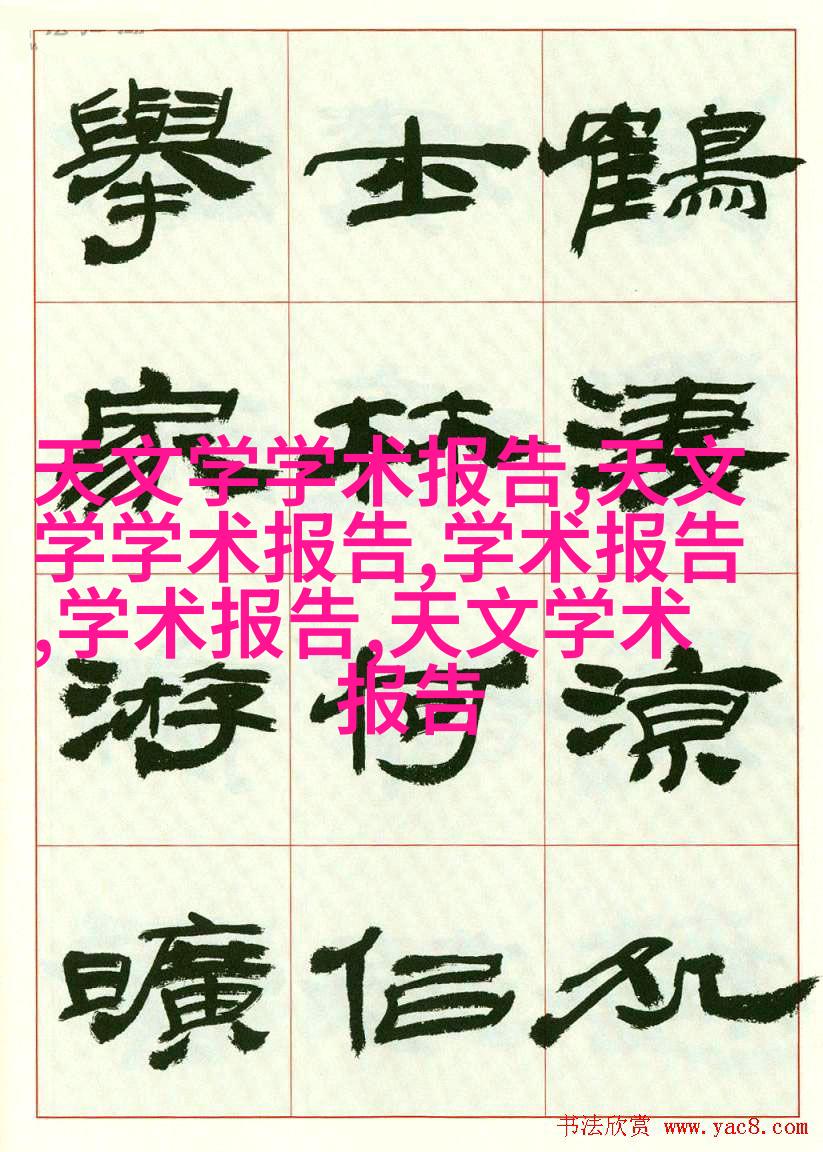 舉士鶴
家林淒
天文学学术报告,天文
学学术报告,学术报告
,学术报告,天文学术
报告
游何涼
曠侶
书法欣赏 www.yac8.com